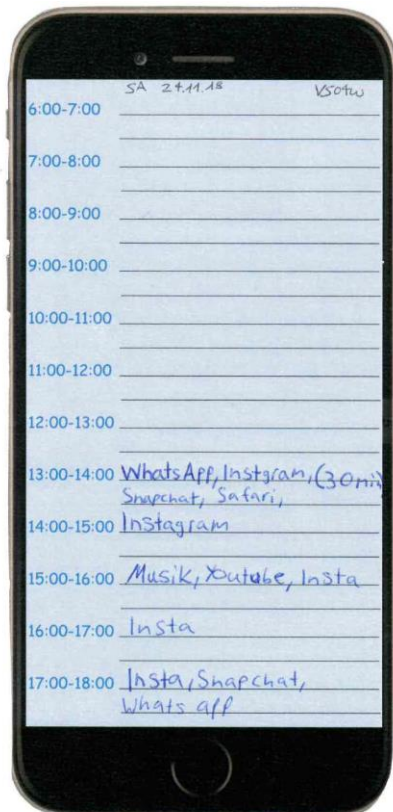 SA 24.11.18
6:00-7:00
7:00-8:00
8:00-9:00
9:00-10:00
10:00-11:00
11:00-12:00
12:00-13:00
13:00-14:00 WhatsApp, Instgram, (30min)
Snapchat, Safari,
14:00-15:00 Instagram
15:00-16:00 Musik, Youtube, Insta
16:00-17:00 Insta
17:00-18:00 Insta, Snapchat,
Whats app